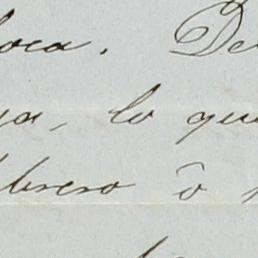 oca. De
ya, lo que
brero ô